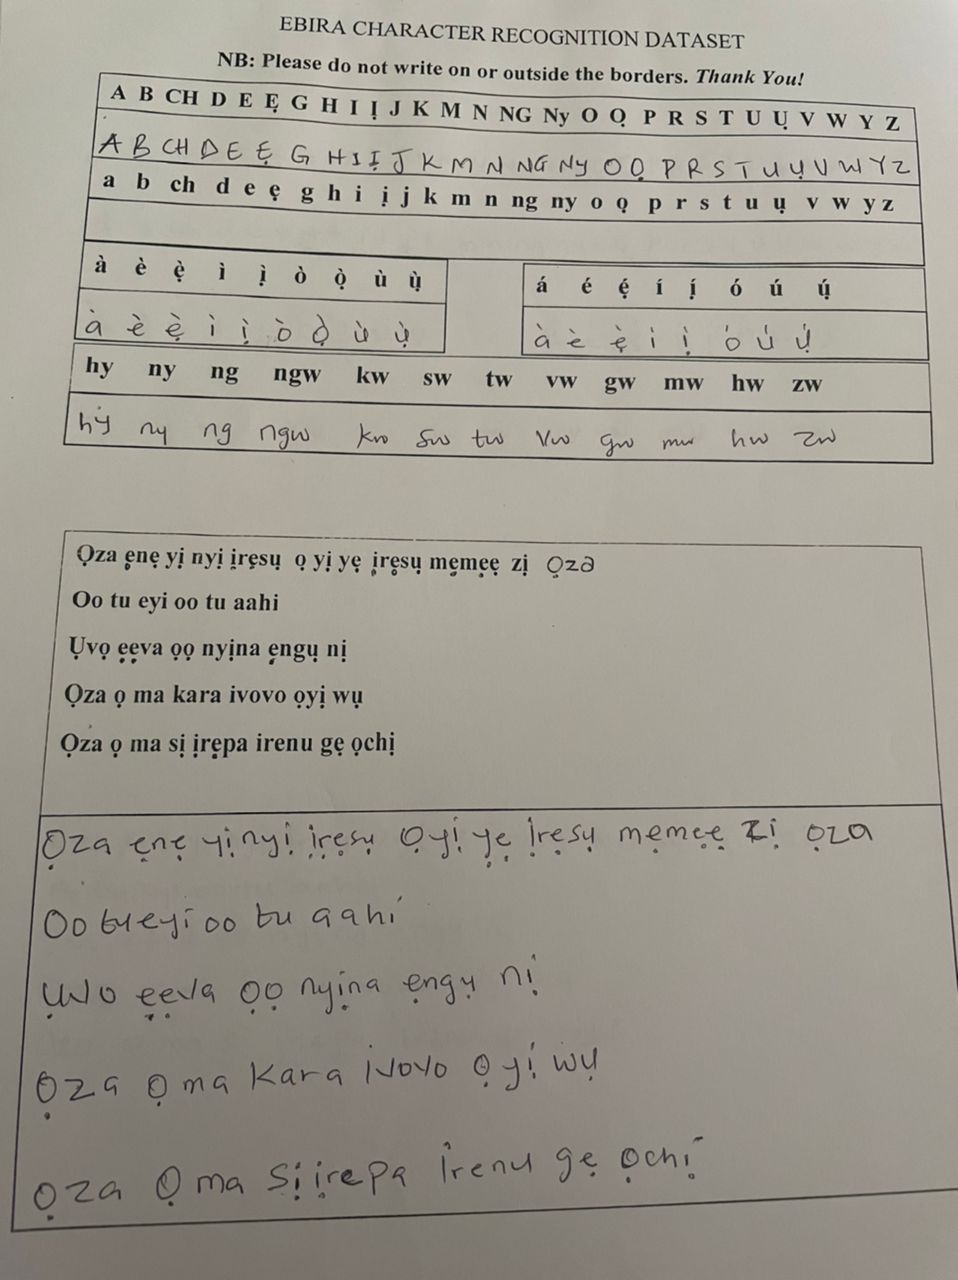 EBIRA CHARACTER RECOGNITION DATASET
NB: Please do not write on or outside the borders. Thank You!
A B CH D E Ẹ G H I Ị J K M N NG Ny O Ọ P R S T U Ụ V W Y Z
A B CH D E Ẹ G H I Ị J K M N NG Ny O Ọ P R S T U Ụ V W Y Z
a b ch d e ẹ g h i ị j k m n ng ny o ọ p r s t u ụ v w y z
à è ẹ̀ ì ị̀ ò ọ̀ ù ụ̀
à è ẹ̀ ì ị̀ ò ọ̀ ù ụ̀
á é ẹ́ í ị́ ó ú ụ́
à è ẹ̀ i ị ó ú ụ́
hy ny ng ngw kw sw tw vw gw mw hw zw
hy ny ng ngw kw sw tw vw gw mw hw zw
Ọza ẹnẹ yị nyị ịrẹsụ ọ yị yẹ ịrẹsụ mẹmẹẹ zị ọza
Oo tu eyi oo tu aahi
Ụvọ ẹẹva ọọ nyịna ẹngụ nị
Ọza ọ ma kara ivovo ọyị wụ
Ọza ọ ma sị ịrẹpa irenu gẹ ọchị
Ọza ẹnẹ yị nyị ịrẹsụ ọ yị yẹ ịrẹsụ mẹmẹẹ zị ọza
Oo tu eyi oo tu aahi
Ụvo ẹẹva ọọ nyịna ẹngụ nị
Ọza ọ ma kara ivovo ọyị wụ
Ọza ọ ma sị ịrepa irenu gẹ ọchị